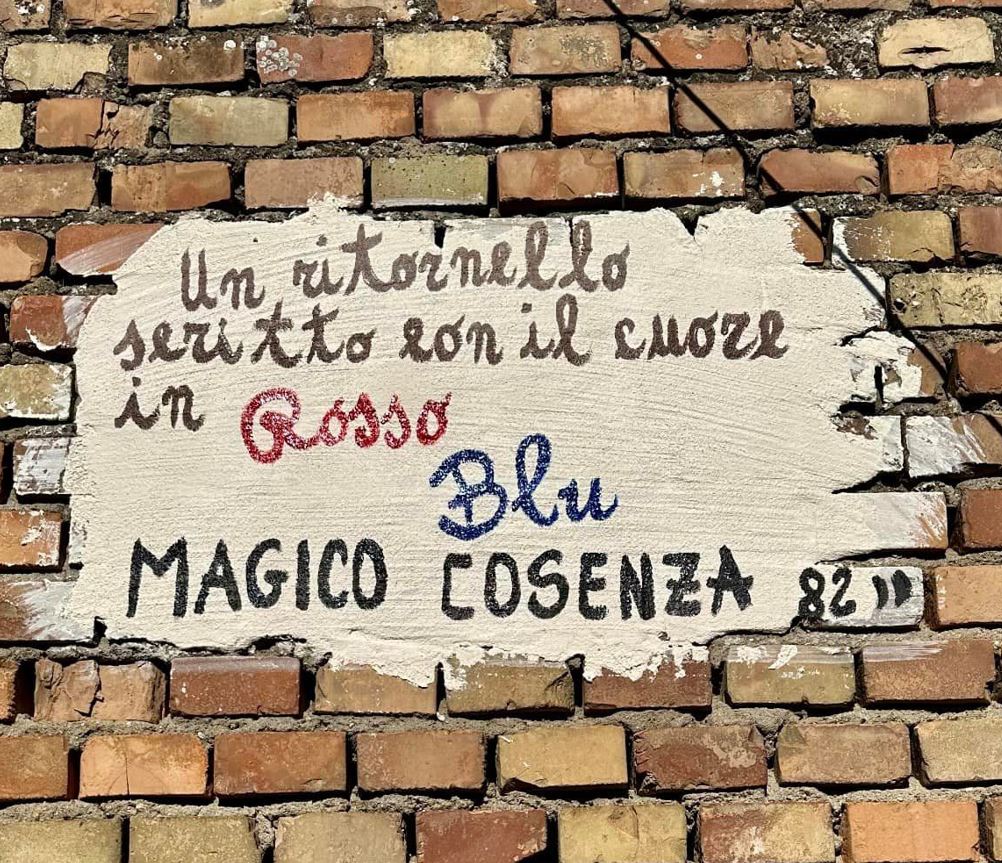 Un ritornello
scritto con il cuore
in Rosso
Blu
MAGICO COSENZA 82 "